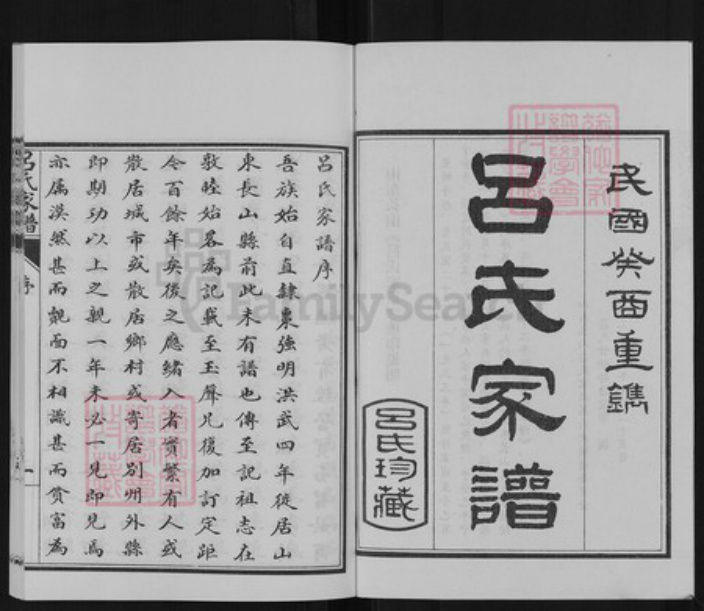 民國癸酉重鐫
呂氏家譜
呂氏珍藏
呂氏家譜序
吾族始自直隸棗強明洪武四年徙居山
東長山縣前此未有譜也傳至記祖志在
敦睦始畧為記載至玉聲兄復加訂定距
今百餘年矣後之應緒入者實繁有人或
散居城市或散居鄉村或寄居別州外縣
即期功以上之親一年未必一見即見焉
亦属漠然甚而覿面不相識甚而貧富為
呂氏家譜
序
一
FamilySearch